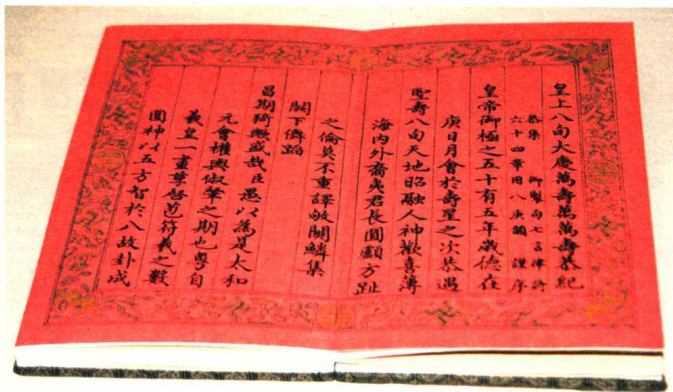 皇上八旬大慶萬壽萬萬壽恭紀
恭集 御製句七言律詩
六十四章用八庚韻 謹序
皇帝御極之五十有五年歲德在
庚日月會於壽星之次恭遇
聖壽八旬天地昭融人神歡喜薄
海內外裔夷君長圓顱方趾
之倫莫不重譯敂關鱗集
闕下儛蹈
昌期猗歟盛哉臣愚以為是太和
元會權輿俶肇之期也粵自
羲皇一畫肇啓苞符蓍之數
圓神以五方智於八故卦成